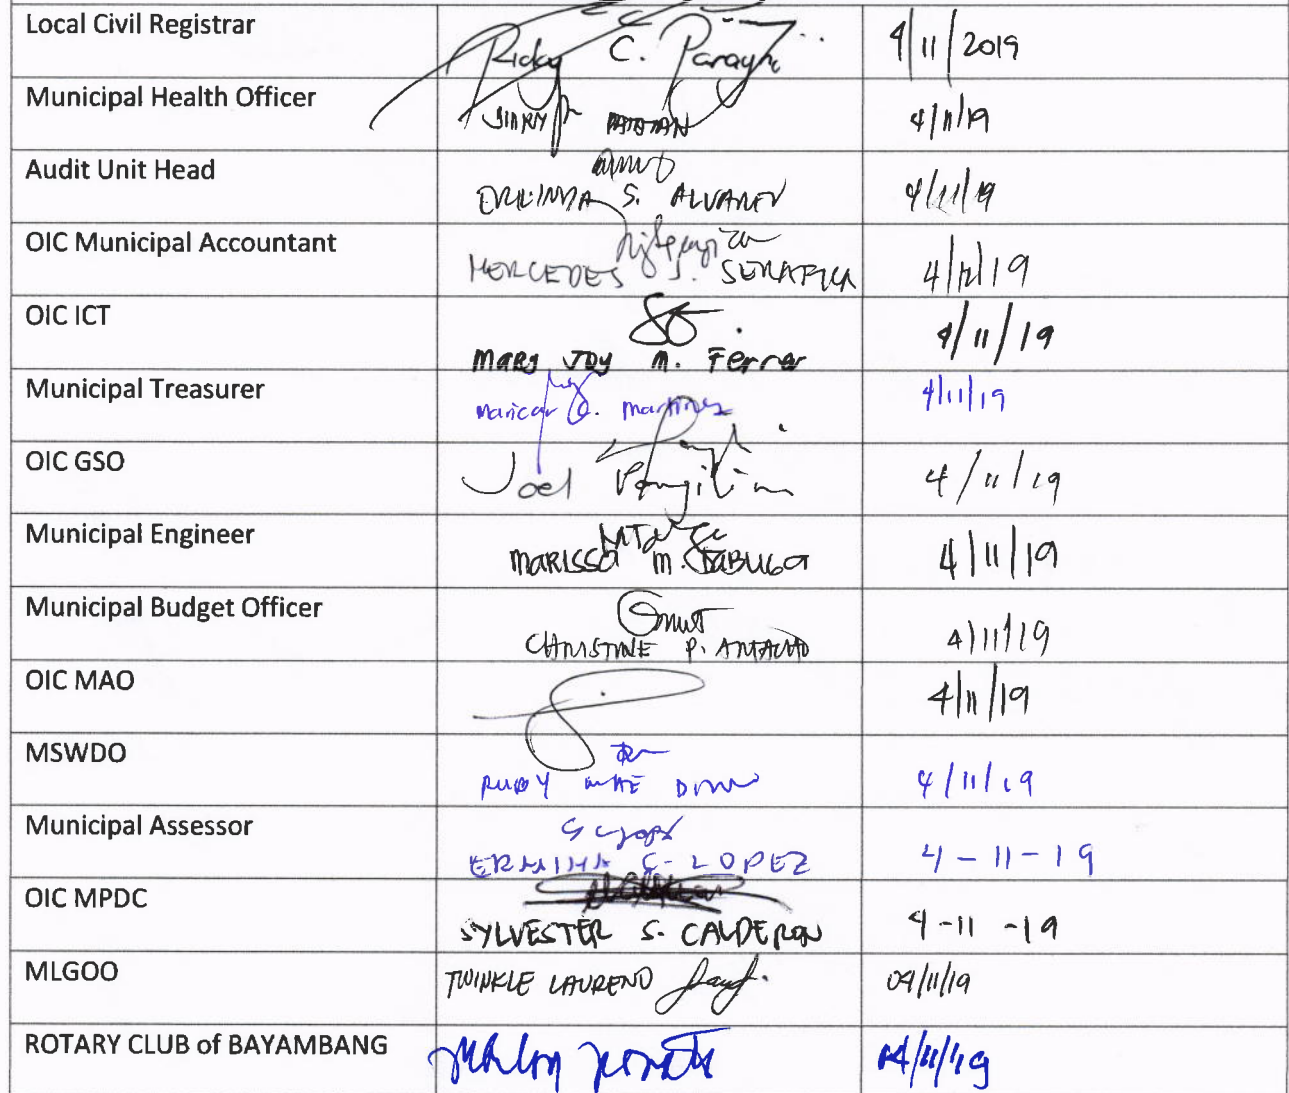 Local Civil Registrar Ricky C. Parayno 4/11/2019
Municipal Health Officer 4/11/19
Audit Unit Head S. ALVAREZ 4/11/19
OIC Municipal Accountant MERCEDES J. SERAFICA 4/12/19
OIC ICT Mary Joy M. Ferrer 4/11/19
Municipal Treasurer maricar martinez 4/11/19
OIC GSO Joel 4/11/19
Municipal Engineer MARISSA M. 4/11/19
Municipal Budget Officer CHRISTINE P. 4/11/19
OIC MAO 4/11/19
MSWDO RUBY MAE 4/11/19
Municipal Assessor LOPEZ 4-11-19
OIC MPDC SYLVESTER S. CALDERON 4-11-19
MLGOO TWINKLE LAURENO 04/11/19
ROTARY CLUB of BAYAMBANG 04/11/19